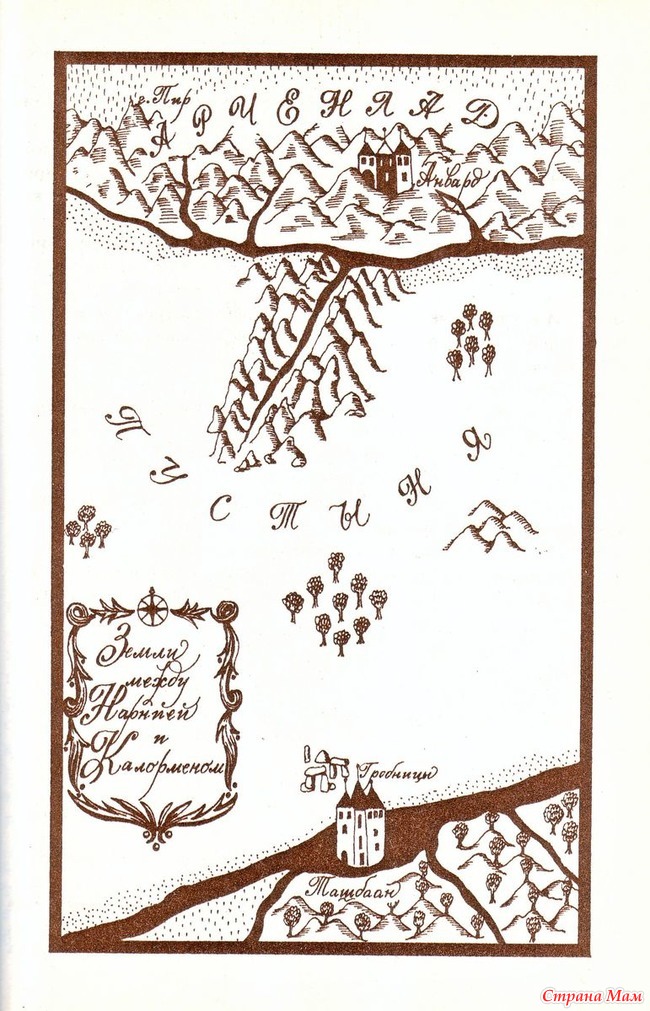 г. Пир
АРИЕНЛАД
Анвард
ПУСТЫНЯ
Земли
между
Нарнией
и
Калорменом
Гробницы
Ташбаан
Страна Мам